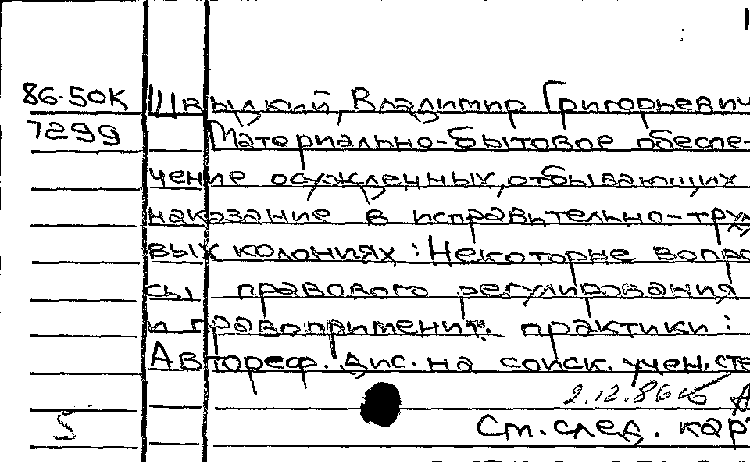 86-50К Швыдкий, Владимир Григорьевич
7299 Материально-бытовое обеспе-
чение осужденных, отбывающих
наказание в исправительно-трудо
вых колониях: Некоторые вопро
сы правового регулирования
и правопременит. практики:
Автореф. дис. на соиск. учен. сте
2.12.86
5 См. след. кар